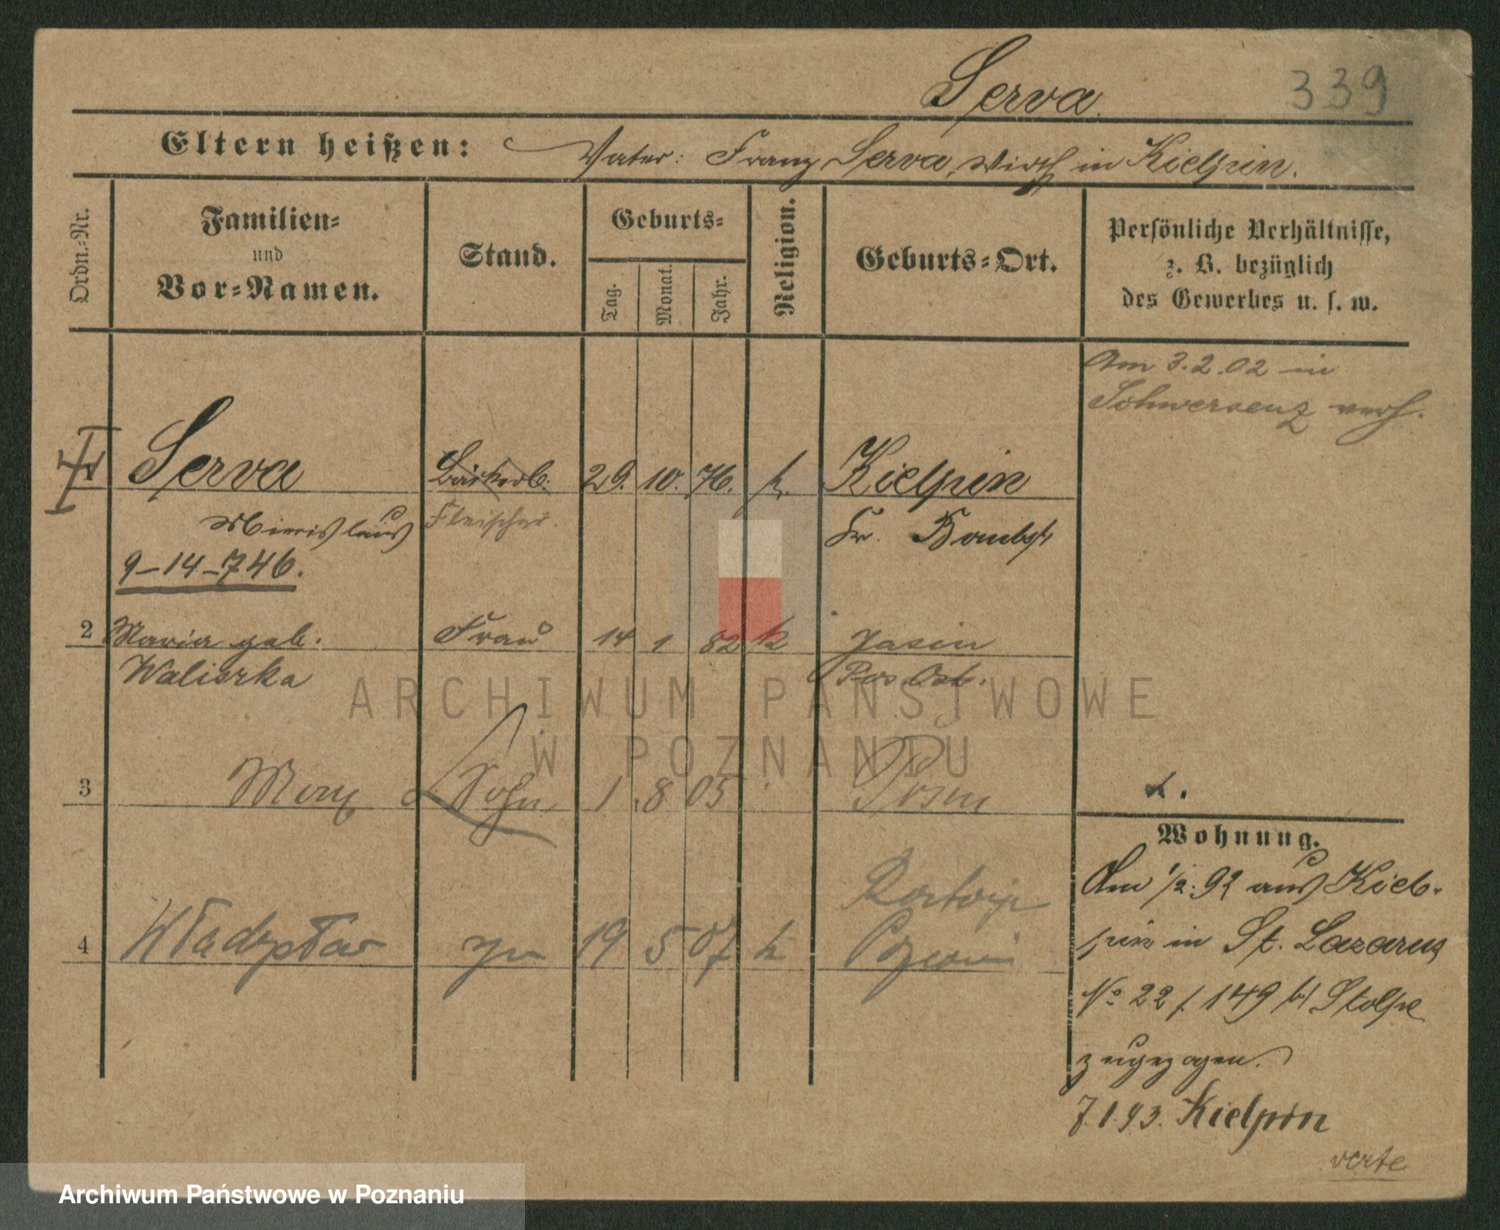 Serva.
339
Eltern heißen: Vater: Franz Serva, Wirth in Kielpin.
Ordn.-Nr.
Familien-
und
Vor-Namen.
Stand.
Geburts-
Tag.
Monat.
Jahr.
Religion.
Geburts-Ort.
Persönliche Verhältnisse,
z. B. bezüglich
des Gewerbes u. s. w.
Am 3.2.02 in
Schwersenz verh.
Serva
29. 10. 76. k. Kielpin
Fleischer.
Kr. Bombst
9-14-746.
2 Maria geb. Frau 14 1 82 k Jasin
Walierka
Pos Ost.
3 Max Sohn 1 8 05 Posen
4 Władysław 19 5 07 k
Wohnung.
Am 1/2. 92 aus Kiel-
pin in St. Lazarus
No 22 / 149 b/ Stolpe
zugezogen.
7.1.93. Kielpin
verte
ARCHIWUM PAŃSTWOWE
W POZNANIU
Archiwum Państwowe w Poznaniu